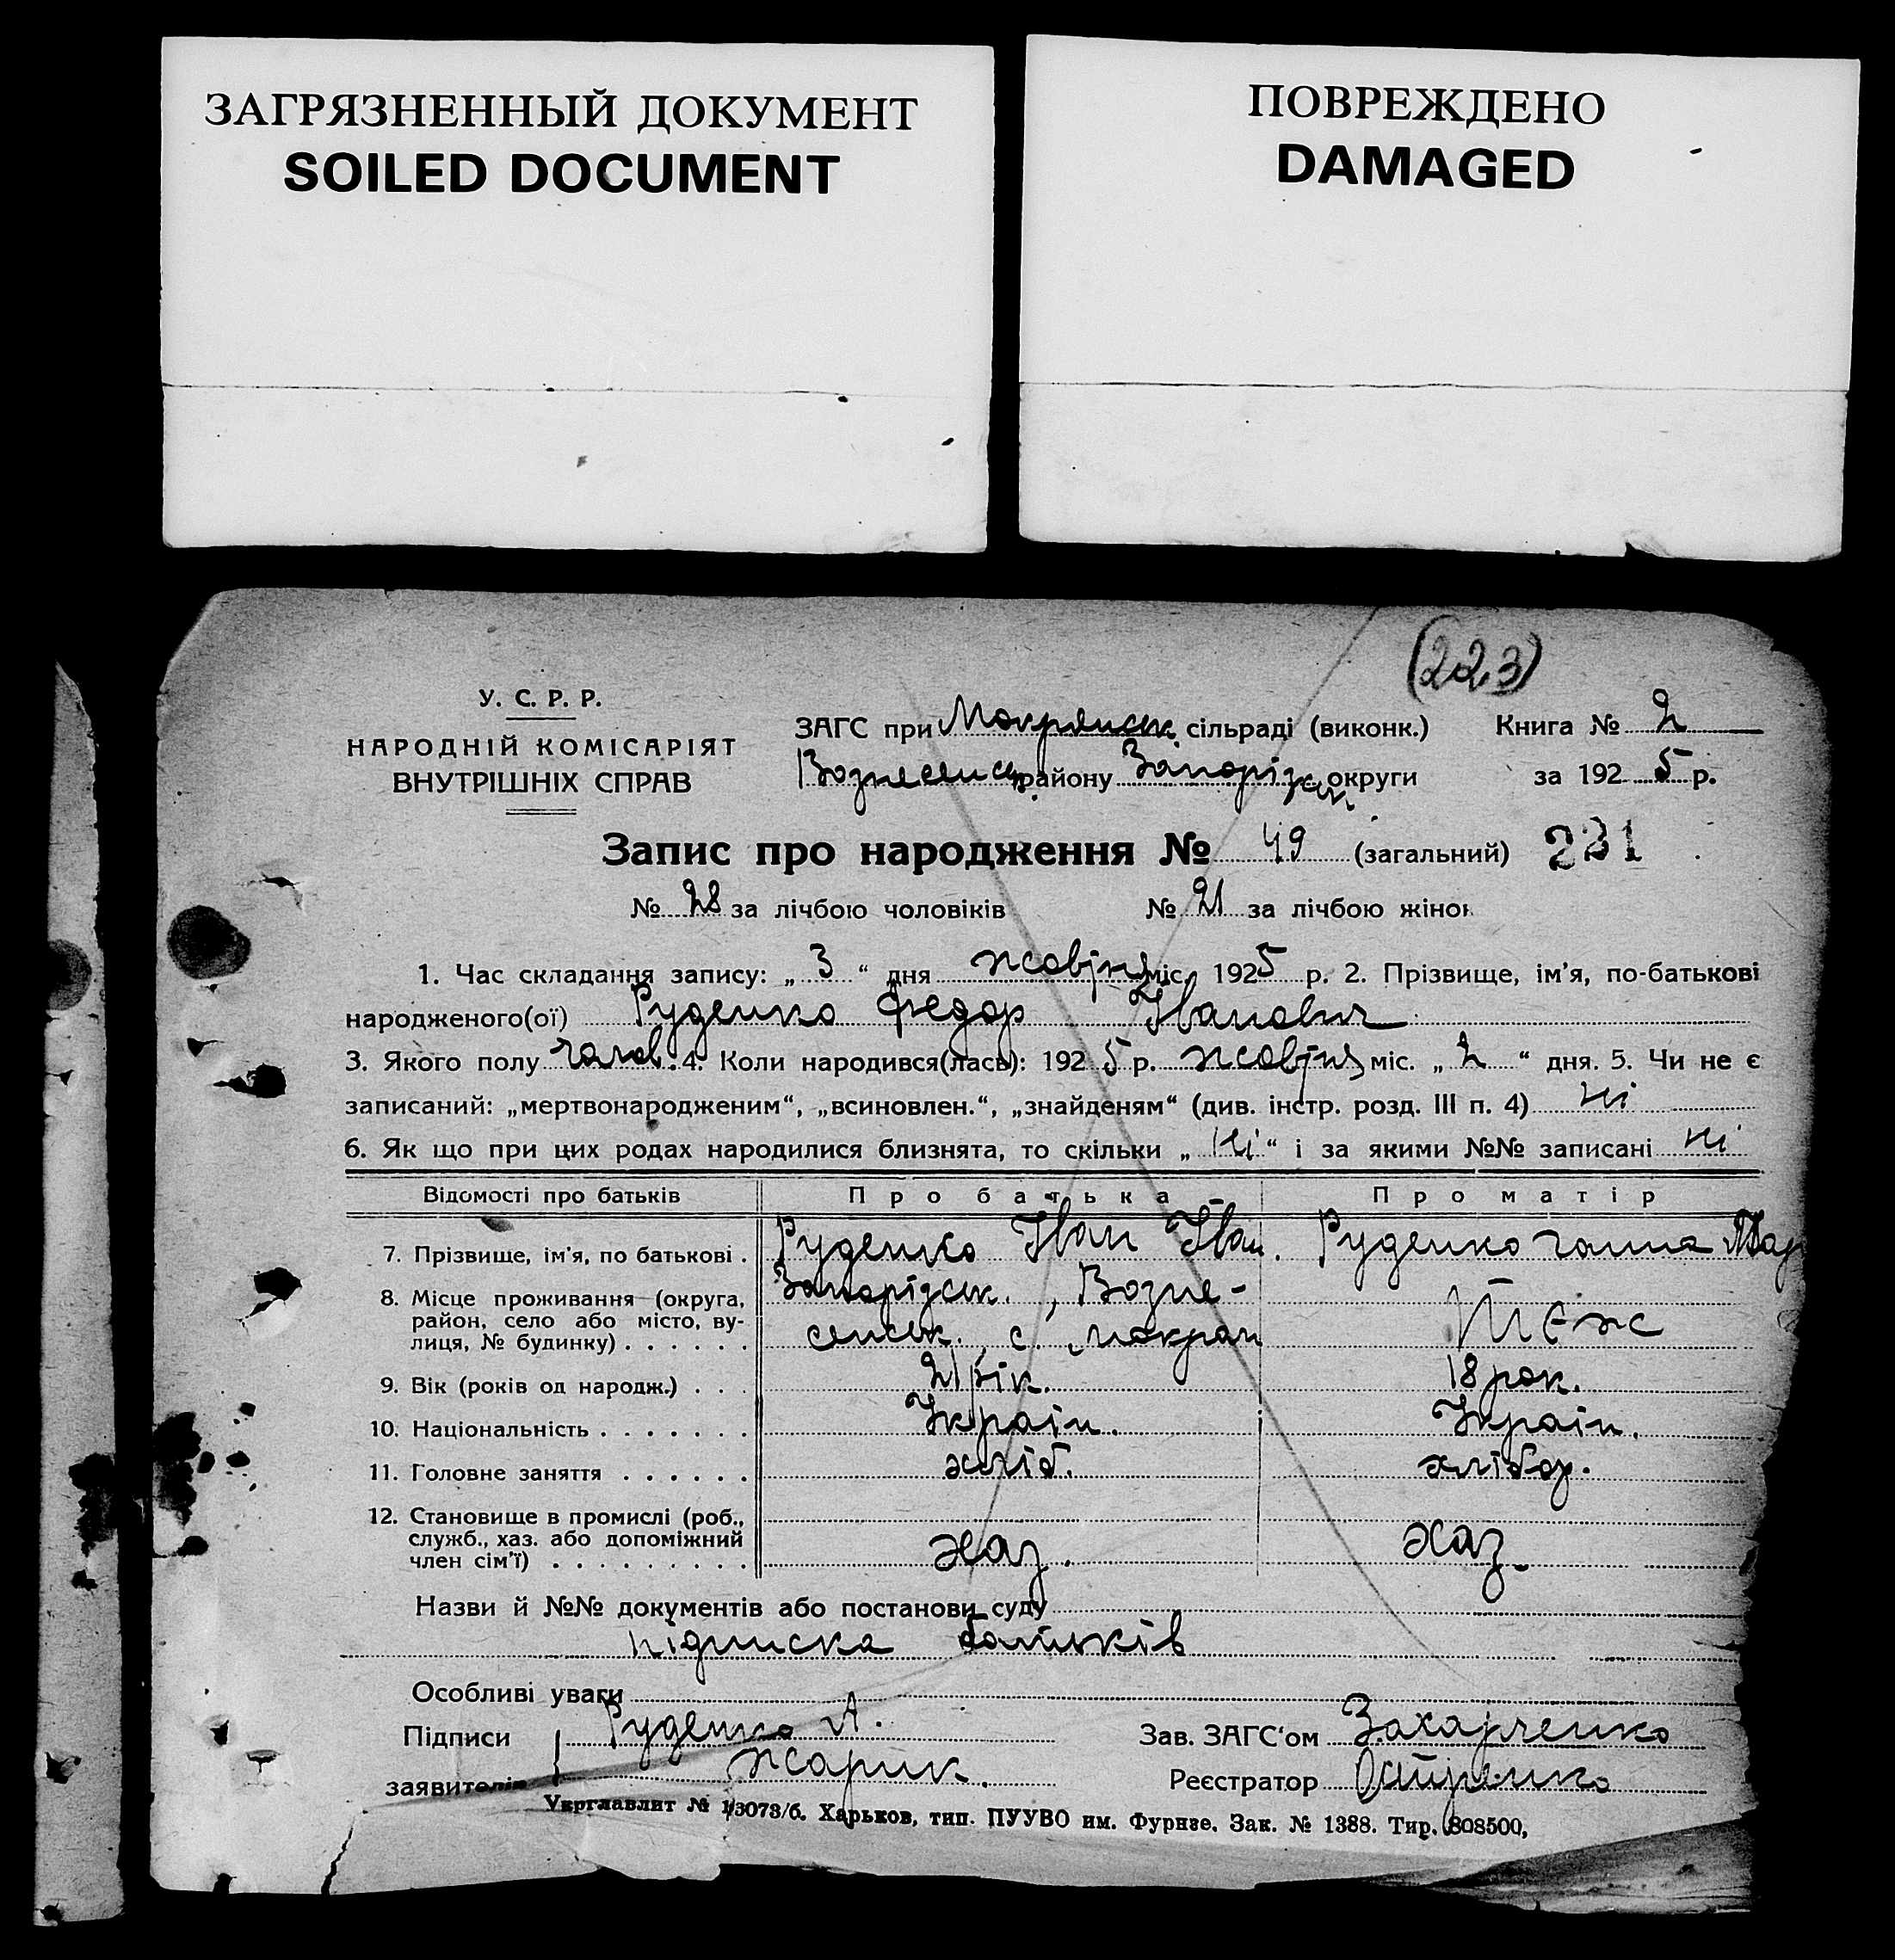 ЗАГРЯЗНЕННЫЙ ДОКУМЕНТ
SOILED DOCUMENT
ПОВРЕЖДЕНО
DAMAGED
(223)
У. С. Р. Р.
НАРОДНІЙ КОМІСАРІЯТ
ВНУТРІШНІХ СПРАВ
ЗАГС при Мокрянськ сільраді (виконк.) Книга № 2
Вознесенськ. району Запорізьк. округи за 192 5 р.
Запис про народження № 49 (загальний) 231
№ 28 за лічбою чоловіків № 21 за лічбою жінок
1. Час складання запису: „ 3 “ дня жовтня міс. 1925 р. 2. Прізвище, ім’я, по-батькові
народженого(ої) Руденко Федор Іванович
3. Якого полу чолов. 4. Коли народився(лась): 192 5 р. жовтня міс. „ 2 “ дня. 5. Чи не є
записаний: „мертвонародженим“, „всиновлен.“, „знайденям“ (див. інстр. розд. III п. 4) ні
6. Як що при цих родах народилися близнята, то скільки „ ні “ і за якими №№ записані ні
Відомості про батьків Про батька Про матір
7. Прізвище, ім’я, по батькові . Руденко Іван Іван. Руденко Ганна Мар
8. Місце проживання (округа, район, село або місто, вулиця, № будинку) . . . . . . Запорідськ., Вознесенськ. с. Мокрян Теж
9. Вік (років од народж.) . . . 21 рік. 18 рок.
10. Національність . . . . . . . Україн. Україн.
11. Головне заняття . . . . . . хліб. хлібор.
12. Становище в промислі (роб., служб., хаз. або допоміжний член сім’ї) . . . . . . . . . хаз. хаз.
Назви й №№ документів або постанови суду
підписка батьків
Особливі уваги
Підписи Руденко А. Зав. ЗАГС‘ом Захарченко
заявителів Жарик. Реєстратор
Укрглавлит № 13073/б. Харьков, тип. ПУУВО им. Фурнзе. Зак. № 1388. Тир. 808500,